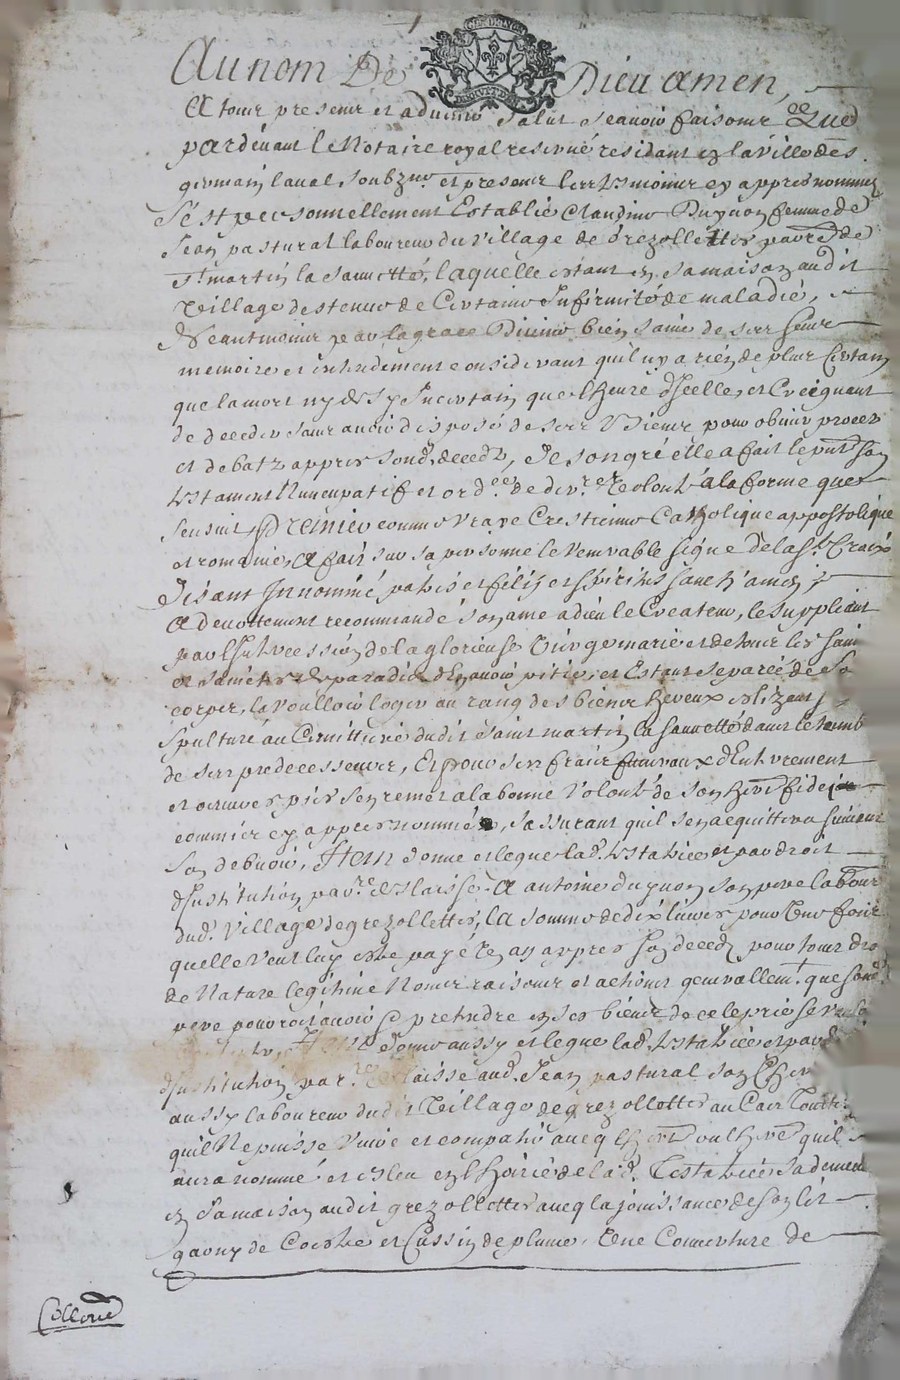 Au nom De Dieu amen,
A tous presens et advenir salut scavoir faisons Que
pardevant le Notaire royal reservé residant en la ville de St
germain laval soubzné et presens les tesmoins cy appres nommez
S'est personnellement Establie Claudine Dupuon femme de
Jean pastural laboureur du village de grezollettes parre de
St martin la sauvetté, laquelle estant en sa maison audit
Village destenue de Certaine Infirmité de maladie,
Et Neantmoins par la grace Divine bien saine de ses sens
memoire et entendement considerant qu'il ny a rien de plus Certain
que la mort ny de sy Incertain que l'heure d'Icelle, et Creignant
de deceder sans avoir disposé de ses Biens pour obvier proces
et debatz appres son deceds, De son gré elle a fait le pnt son
testament Nuncupatif et ordce de derre Volonté à la forme que
sensuit Premier comme vraye Crestienne Catholique appostolique
et romaine, A fait sur sa personne le Venerable signe de la Ste Croix
Disant In nomine patris et filij et spiritus sancti amen
A devottement recommandé son ame a dieu le Createur, le suppliant
par l'Intercession de la glorieuse Vierge marie et de tous les saints
et saintes de paradis d'En avoir pitie, et Estant separée de son
corps, la Voulloir loger au rang des bienheureux eslizant
Spulture au Cimittiere dudit saint martin la sauvetté dans le tomb
de ses predecesseurs, Et pour ses frais funeraux d'Enterrement
et oeuvres pies s'en remet a la bonne Volonté de son herr fidei
commis cy appres nommé, s'assurant quil s'en acquittera suivant
son debvoir, Item donne et legue lad. testatrice et par droit
d'Institution parre delaisse A antoine dupuon son pere labour
dud. village de grezollettes, la somme de dix livres pour Une fois
quelle veut luy estre payé Un an appres son deceds pour tous dro
de Nature legitime Noms raisons et actions generallemt. que sond.
pere pourroit avoir et pretendre en ses biens de ce le prie se
Item donne aussy et legue lad. testatrice et par d
d'Institution parre delaisse aud. Jean pastural son Cher
aussy laboureur dudit Village de grezollettes au Cas Toutte
quil Ne puisse Vivre et compatir avecq l'herr ou l'here quil
aura nommé et esleu en l'hoirie de lad. Testatrice, sa demeure
en sa maison audit grezollettes avecq la jouissance de son lit
garny de Coistre et Cussin de plume, Une Couverture de
Colleue